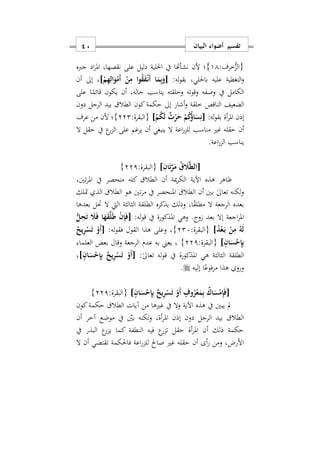 تفسير أضواء البيان
٤٠
{الزُّخرف: ١٨}؛ لأن نشأتها في الحلية دليل على نقصها، المراد جبره
والتغطية عليه بالحلي، بقوله: [وَبِمَا أَنْفَقُوا مِنْ أَمْوَالِهِمْ]، إلى أن
الكامل في وصفه وقوته وخلقته يناسب حاله، أن يكون قائمًا على
الضعيف الناقص خلقة وأشار إلى حكمة كون الطلاق بيد الرجل دون
إذن المرأة بقوله: [نِسَاؤُكُمْ حَرْثٌ لَكُمْ] {البقرة: ٢٢٣}؛ لأن من عرف
أن حقله غير مناسب للزراعة لا ينبغي أن يرغم على الزرع في حقل لا
يناسب الزراعة.
[الطَّلَاقُ مَرَّتَانِ] {البقرة: ٢٢٩}
ظاهر هذه الآية الكريمة أن الطلاق كله منحصر في المرتين،
ولكنه تعالى بين أن الطلاق المنحصر في مرتين هو الطلاق الذي تملك
بعده الرجعة لا مطلقًا، وذلك بذكره الطلقة الثالثة التي لا تحل بعدها
المراجعة إلا بعد زوج. وهي المذكورة في قوله: [فَإِنْ طَلَّقَهَا فَلَا تَحِلُّ
لَهُ مِنْ بَعْدُ] {البقرة: ٢٣٠}، وعلى هذا القول فقوله: [أَوْ تَسْرِيحٌ
بِإِحْسَانٍ] {البقرة: ٢٢٩}، يعني به عدم الرجعة وقال بعض العلماء
الطلقة الثالثة هي المذكورة في قوله تعالى: [أَوْ تَسْرِيحٌ بِإِحْسَانٍ]،
وروي هذا مرفوعًا إليه ﷺ.
[فَإِمْسَاكٌ بِمَعْرُوفٍ أَوْ تَسْرِيحٌ بِإِحْسَانٍ] {البقرة: ٢٢٩}
لم يبين في هذه الآية ولا في غيرها من آيات الطلاق حكمة كون
الطلاق بيد الرجل دون إذن المرأة، ولكنه بيَّن في موضع آخر أن
حكمة ذلك أن المرأة حقل تزرع فيه النطفة كما يزرع البذر في
الأرض، ومن رأى أن حقله غير صالح للزراعة فالحكمة تقتضي أن لا